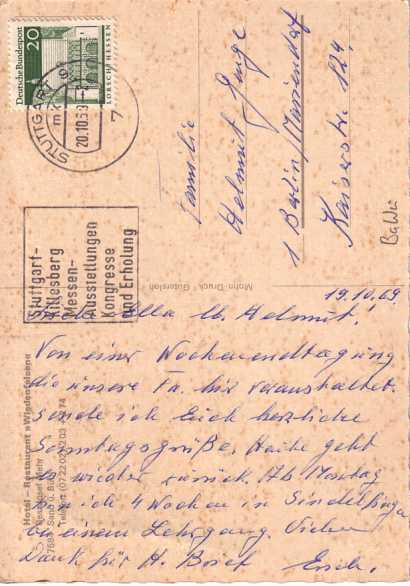 Deutsche Bundespost
20
LORSCH/HESSEN
STUTTGART
20.10.69
7
Stuttgart-
Killesberg
Messen-
Ausstellungen
Kongresse
und Erholung
Familie
Helmut
1 Berlin/Mariendorf
Kaiserstr. 124
BaWü
Mohn-Druck Gütersloh
Hotel – Restaurant »Wiedenfelsen«
19.10.69
Liebe Ella lb. Helmut!
Von einer Wochenendtagung
die unsere Fa. hier veranstaltet.
Sende ich Euch herzliche
Sonntagsgrüße. Heute geht
es wieder zurück. Ab Montag
bin ich 4 Wochen in Sindelfingen
an einem Lehrgang. Vielen
Dank für H. Brief